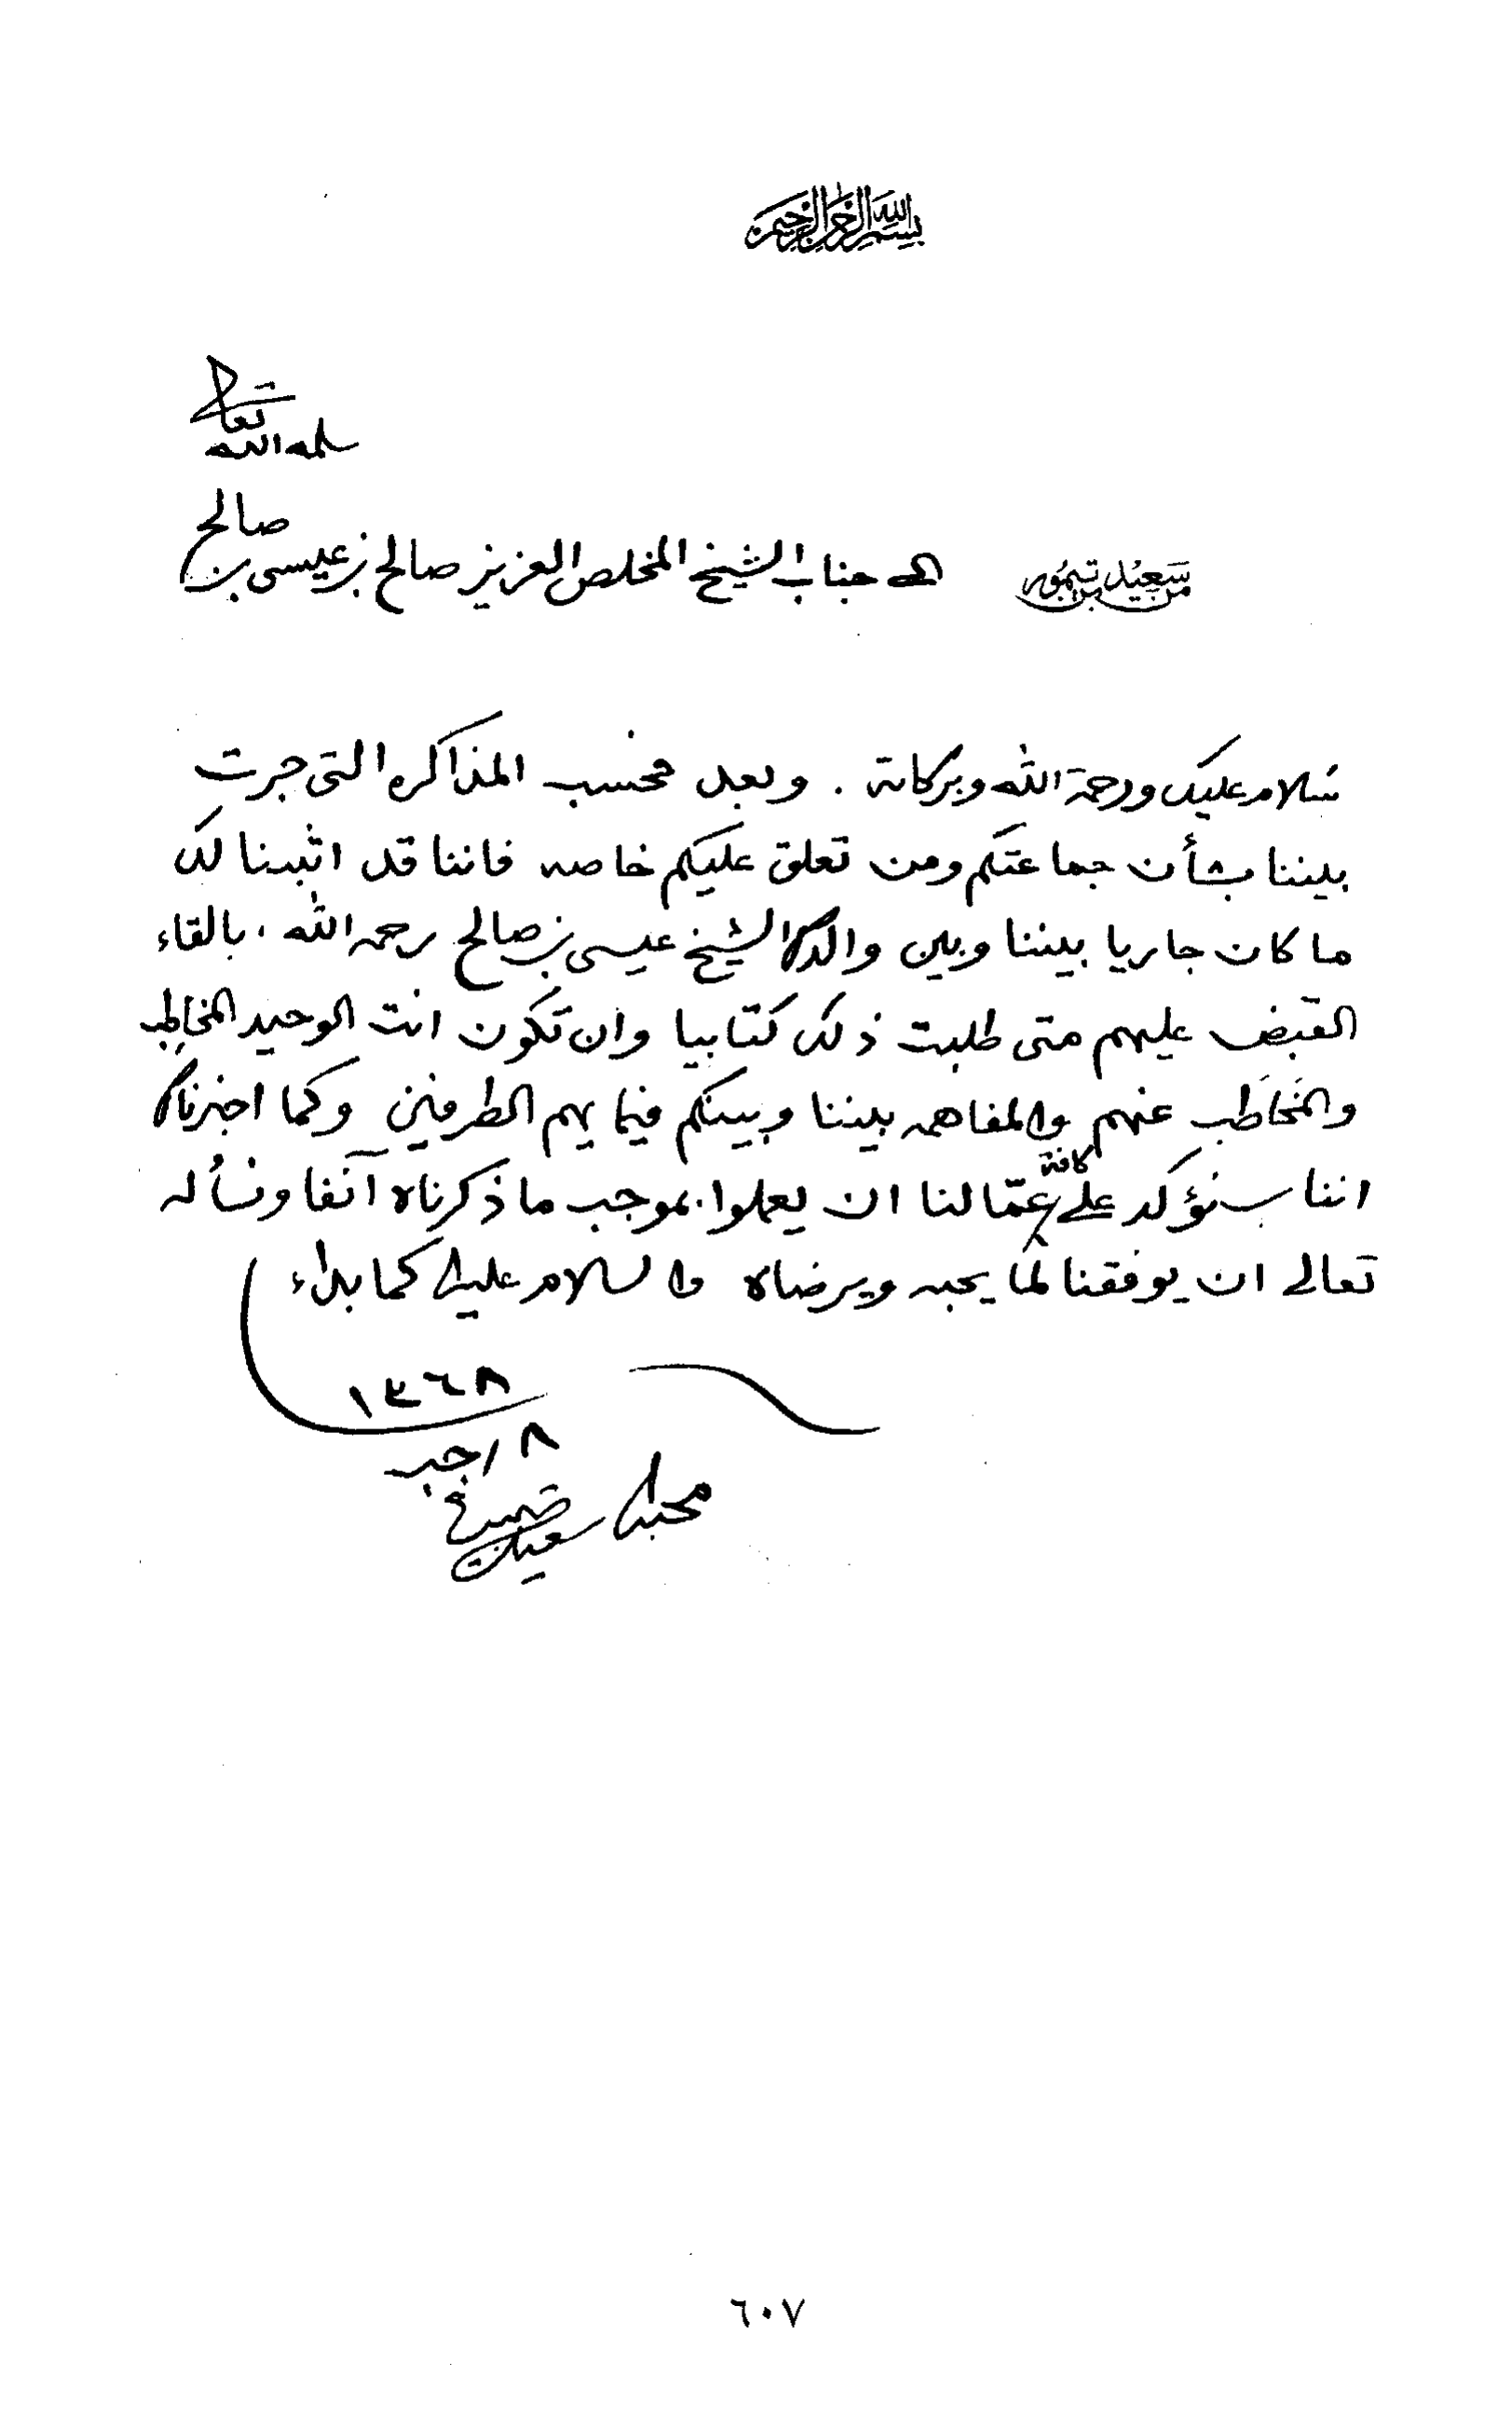 بسم الله الرحمن الرحيم
من سعيد بن تيمور الى جناب الشيخ المخلص العزيز صالح بن عيسى بن صالح
سلمه الله تعالى
سلام عليك ورحمة الله وبركاته . وبعد فحسب المذاكره التى جرت
بيننا بشأن جماعتكم ومن تعلق عليكم خاصه فاننا قد اثبتنا لك
ما كان جاريا بيننا وبين والدك الشيخ عيسى بن صالح رحمه الله ، بالقاء
القبض عليهم متى طلبت ذلك كتابيا وان تكون انت الوحيد المخاطِب
والمُخاطَب عنهم والمفاهمه بيننا وبينكم فيما يهم الطرفين وكما اخبرناك
اننا سنؤكد على كافة عمّالنا ان يعملوا بموجب ما ذكرناه آنفا ونسأله
تعالى ان يوفقنا لما يحبه ويرضاه والسلام عليك كما بداء
١٣٦٨
٨ رجب
محبك سعيد بن تيمور
٦٠٧